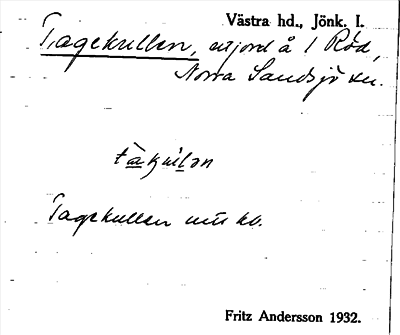 Västra hd., Jönk. l.
Tagekullen, utjord å 1 Röd,
Norra Sandsjö sn.
Tagekullen
Fritz Andersson 1932.